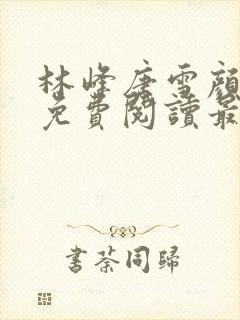 林峰唐雪顏
免費閱讀最
書荼同歸